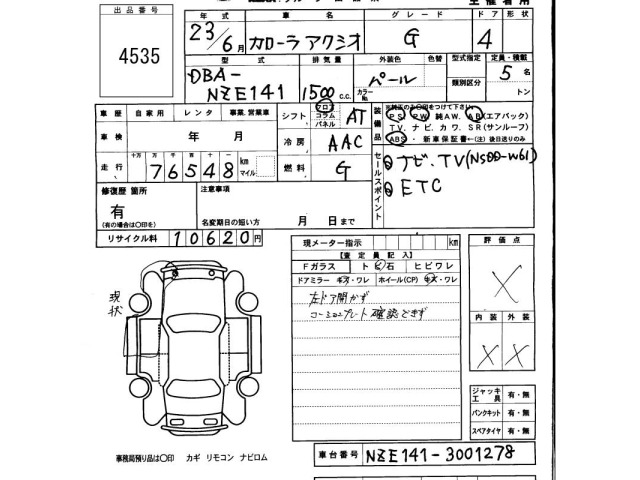 出品番号
4535
年式 車名 グレード ドア 形状
23/6月 カローラ アクシオ G 4
型式 排気量 外装色 色替 型式指定 定員・積載
DBA-
NZE141 1500 c.c. パール カラーNo. 類別区分 5 名
トン
車歴 自家用 レンタ 事業,営業車
シフト フロア コラム パネル AT
車検 年 月
冷房 AAC
走行 十万 万 千 百 十 一
76548 km マイル
燃料 G
装備品
※純正のみ○印をつけて下さい。
PS PW 純AW. AB(エアバック)
TV. ナビ. カワ. SR(サンルーフ)
ABS ・新車保証書←(注)後日送りのみ
セールスポイント
ナビ.TV(NSDD-W61)
ETC
修復歴 箇所
有
(有の場合は○印を)
注意事項
名変期日の短い方 月 日まで
リサイクル料 10620円
現メーター指示 km
【査定員記入】
Fガラス ト 石 ヒビワレ
ドアミラー キズ・ワレ ホイール(CP) キズ・ワレ
左ドア開かず
コーションプレート確認できず
評価点
X
内装 外装
X X
現状
ジャッキ 工具 有・無
パンクキット 有・無
スペアタイヤ 有・無
事務局預り品は○印 カギ リモコン ナビロム
車台番号 NZE141-3001278